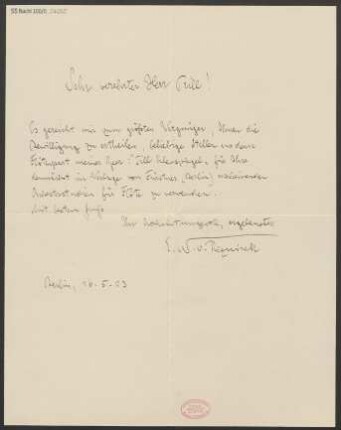 55 Nachl 100/B,
Sehr verehrter Herr Prill!
Es gereicht mir zum größten Vergnügen, Ihnen die
Bewilligung zu ertheilen, beliebige Stellen aus dem
Flötenpart meiner Oper "Till Eulenspiegel" für Ihre
demnächst im Verlage von (Berlin) erscheinenden
Orchesterstudien für Flöte zu verwenden.
Mit bestem Gruß
Ihr hochachtungsvoll ergebenster
E. N. v. Reznicek
Berlin, 23